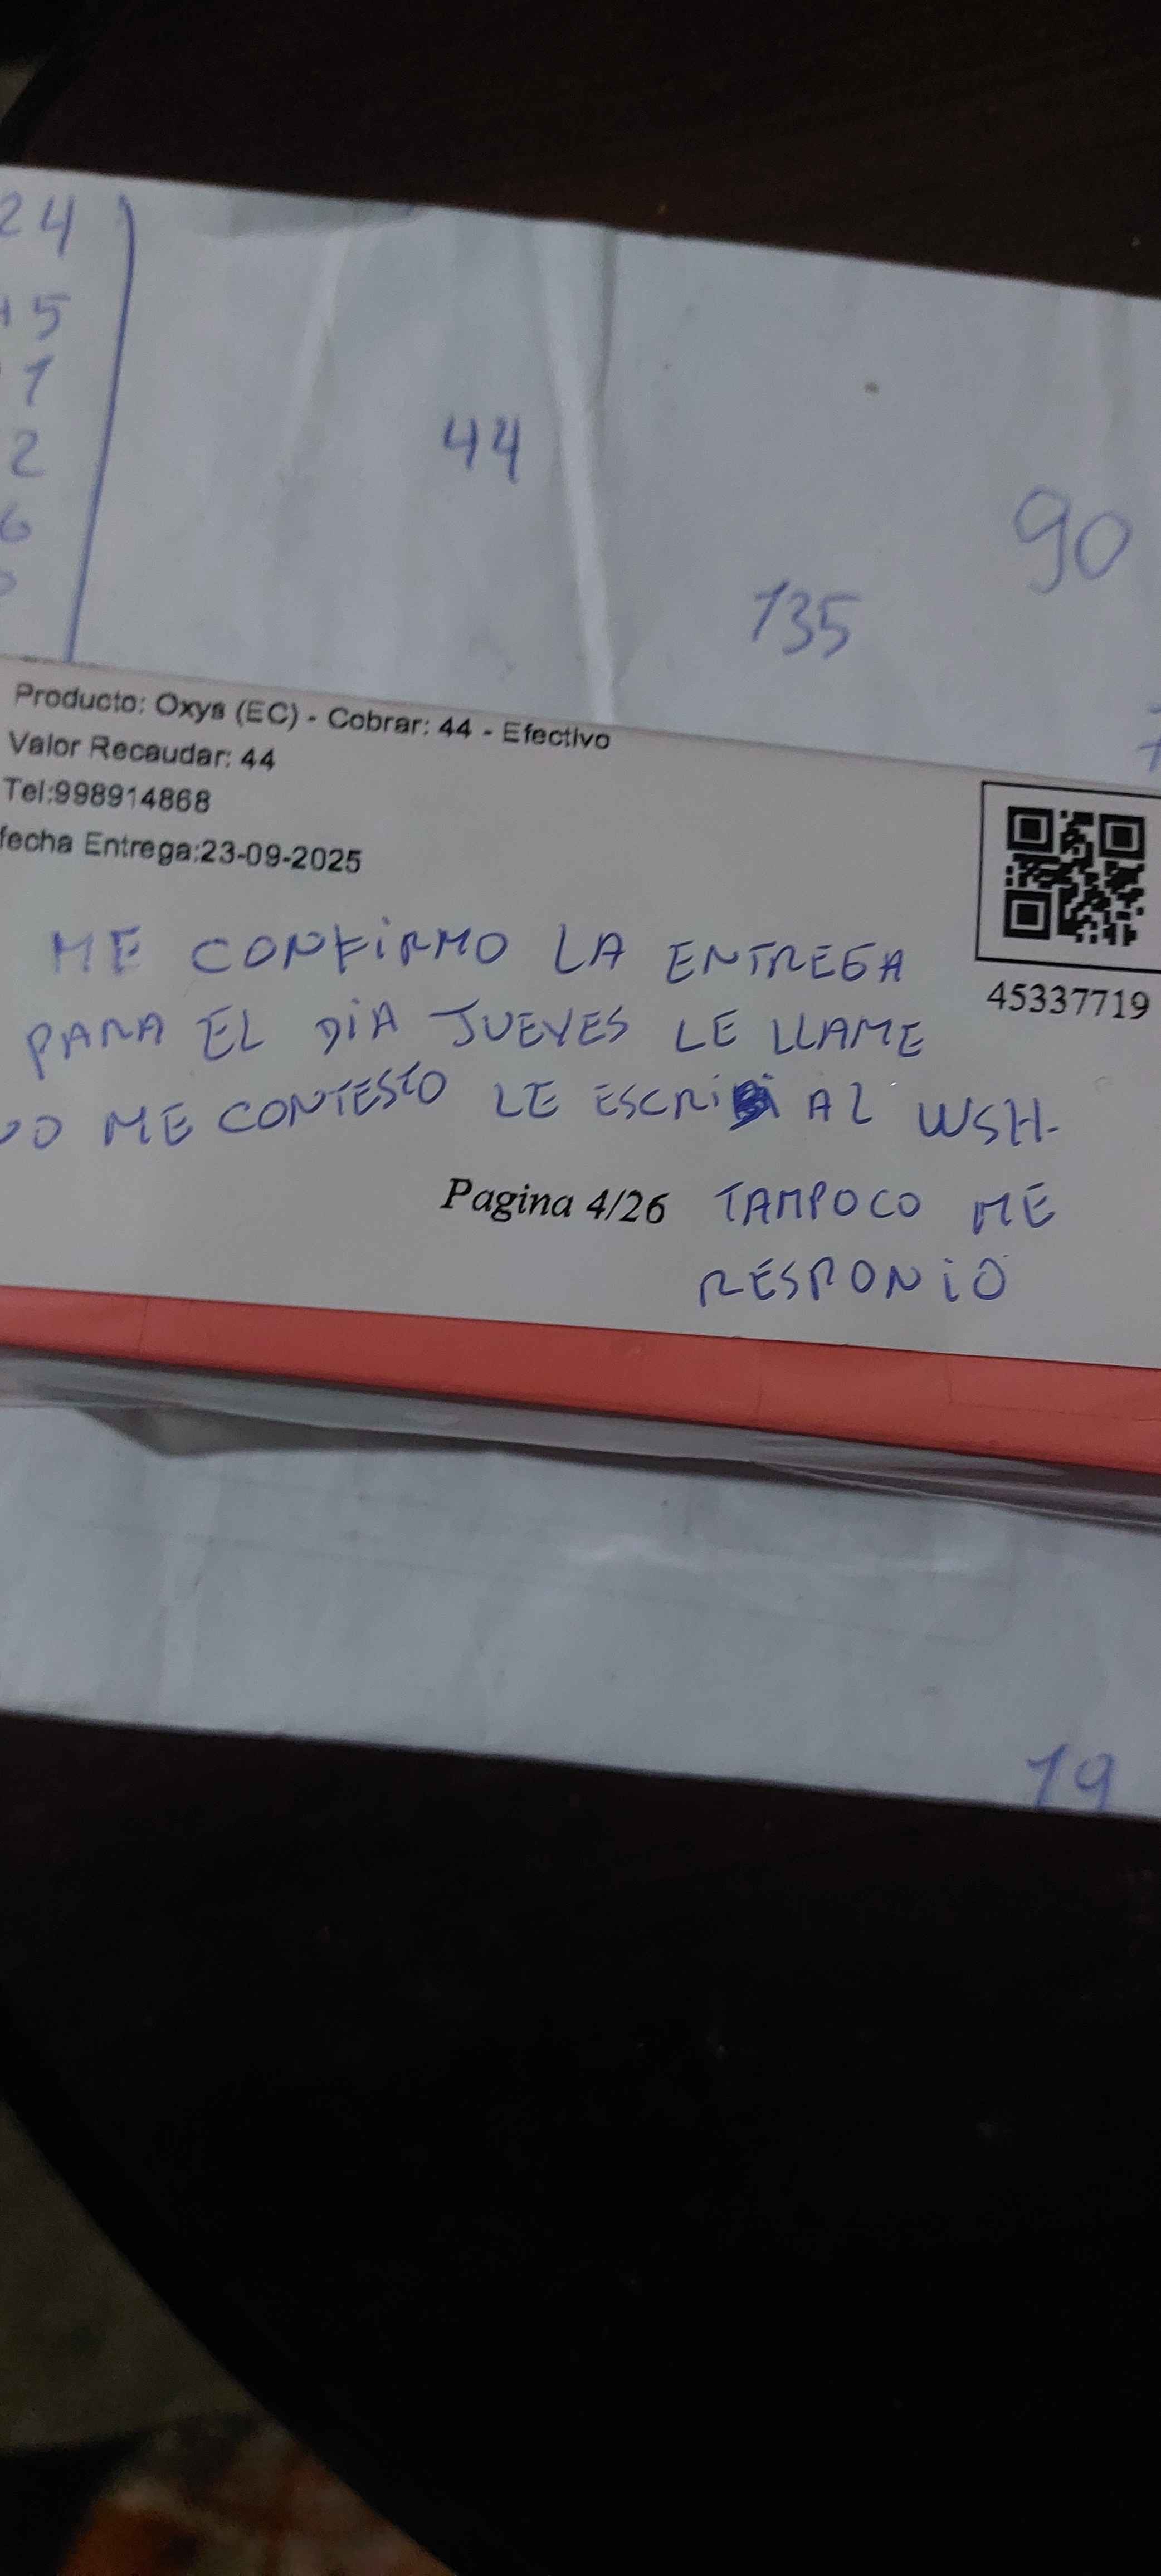 24
+5
1
2
6
44
90
135
Producto: Oxys (EC) - Cobrar: 44 - Efectivo
Valor Recaudar: 44
Tel:998914868
fecha Entrega:23-09-2025
45337719
ME CONFIRMO LA ENTREGA
PARA EL DIA JUEVES LE LLAME
NO ME CONTESTO LE ESCRIBI AL WSH.
Pagina 4/26 TAMPOCO ME
RESPONIO
19